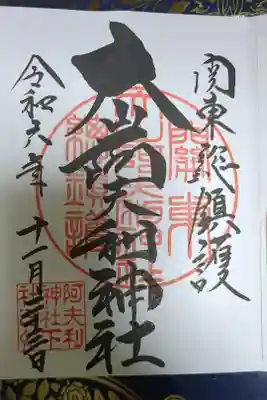 関東総鎮護
大山阿夫利神社
令和六年 十一月二十三日
阿夫利
神社下